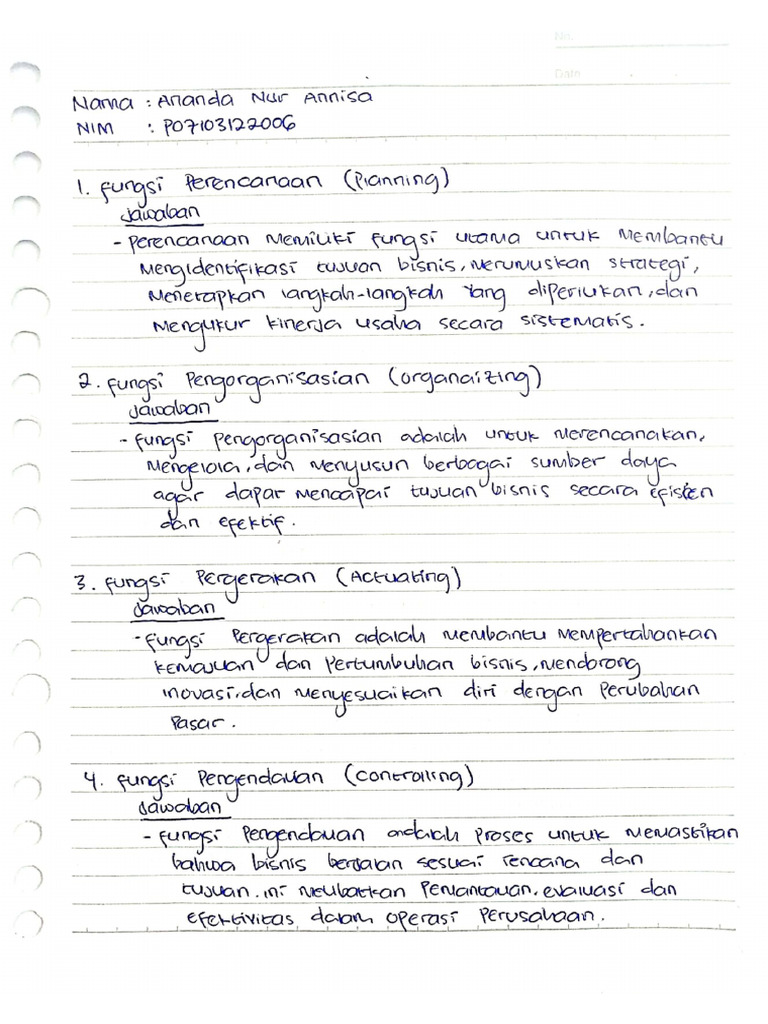 No.
Date
Nama : Ananda Nur Annisa
NIM : P07103122006
1. Fungsi Perencanaan (Planning)
Jawaban
- Perencanaan memiliki fungsi utama untuk membantu
mengidentifikasi tujuan bisnis, merumuskan strategi,
menetapkan langkah-langkah yang diperlukan, dan
mengukur kinerja usaha secara sistematis.
2. Fungsi Pengorganisasian (organaizing)
Jawaban
- Fungsi pengorganisasian adalah untuk merencanakan,
mengelola, dan menyusun berbagai sumber daya
agar dapar mencapai tujuan bisnis secara efisien
dan efektif.
3. Fungsi Pergerakan (Actuating)
Jawaban
- Fungsi Pergerakan adalah membantu mempertahankan
kemajuan dan pertumbuhan bisnis, mendorong
inovasi, dan menyesuaikan diri dengan perubahan
pasar.
4. Fungsi Pengendalian (Controlling)
Jawaban
- Fungsi Pengendalian adalah proses untuk memastikan
bahwa bisnis berjalan sesuai rencana dan
tujuan. ini melibatkan pemantauan, evaluasi dan
efektivitas dalam operasi perusahaan.